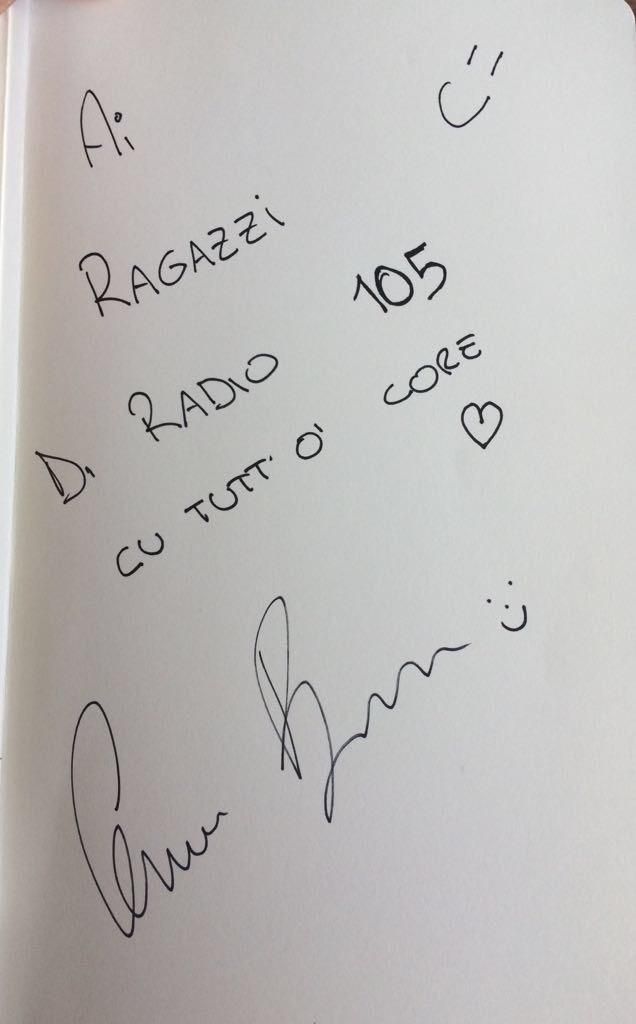 Ai
RAGAZZi
Di RADIO 105
CU TUTT' O' CORE